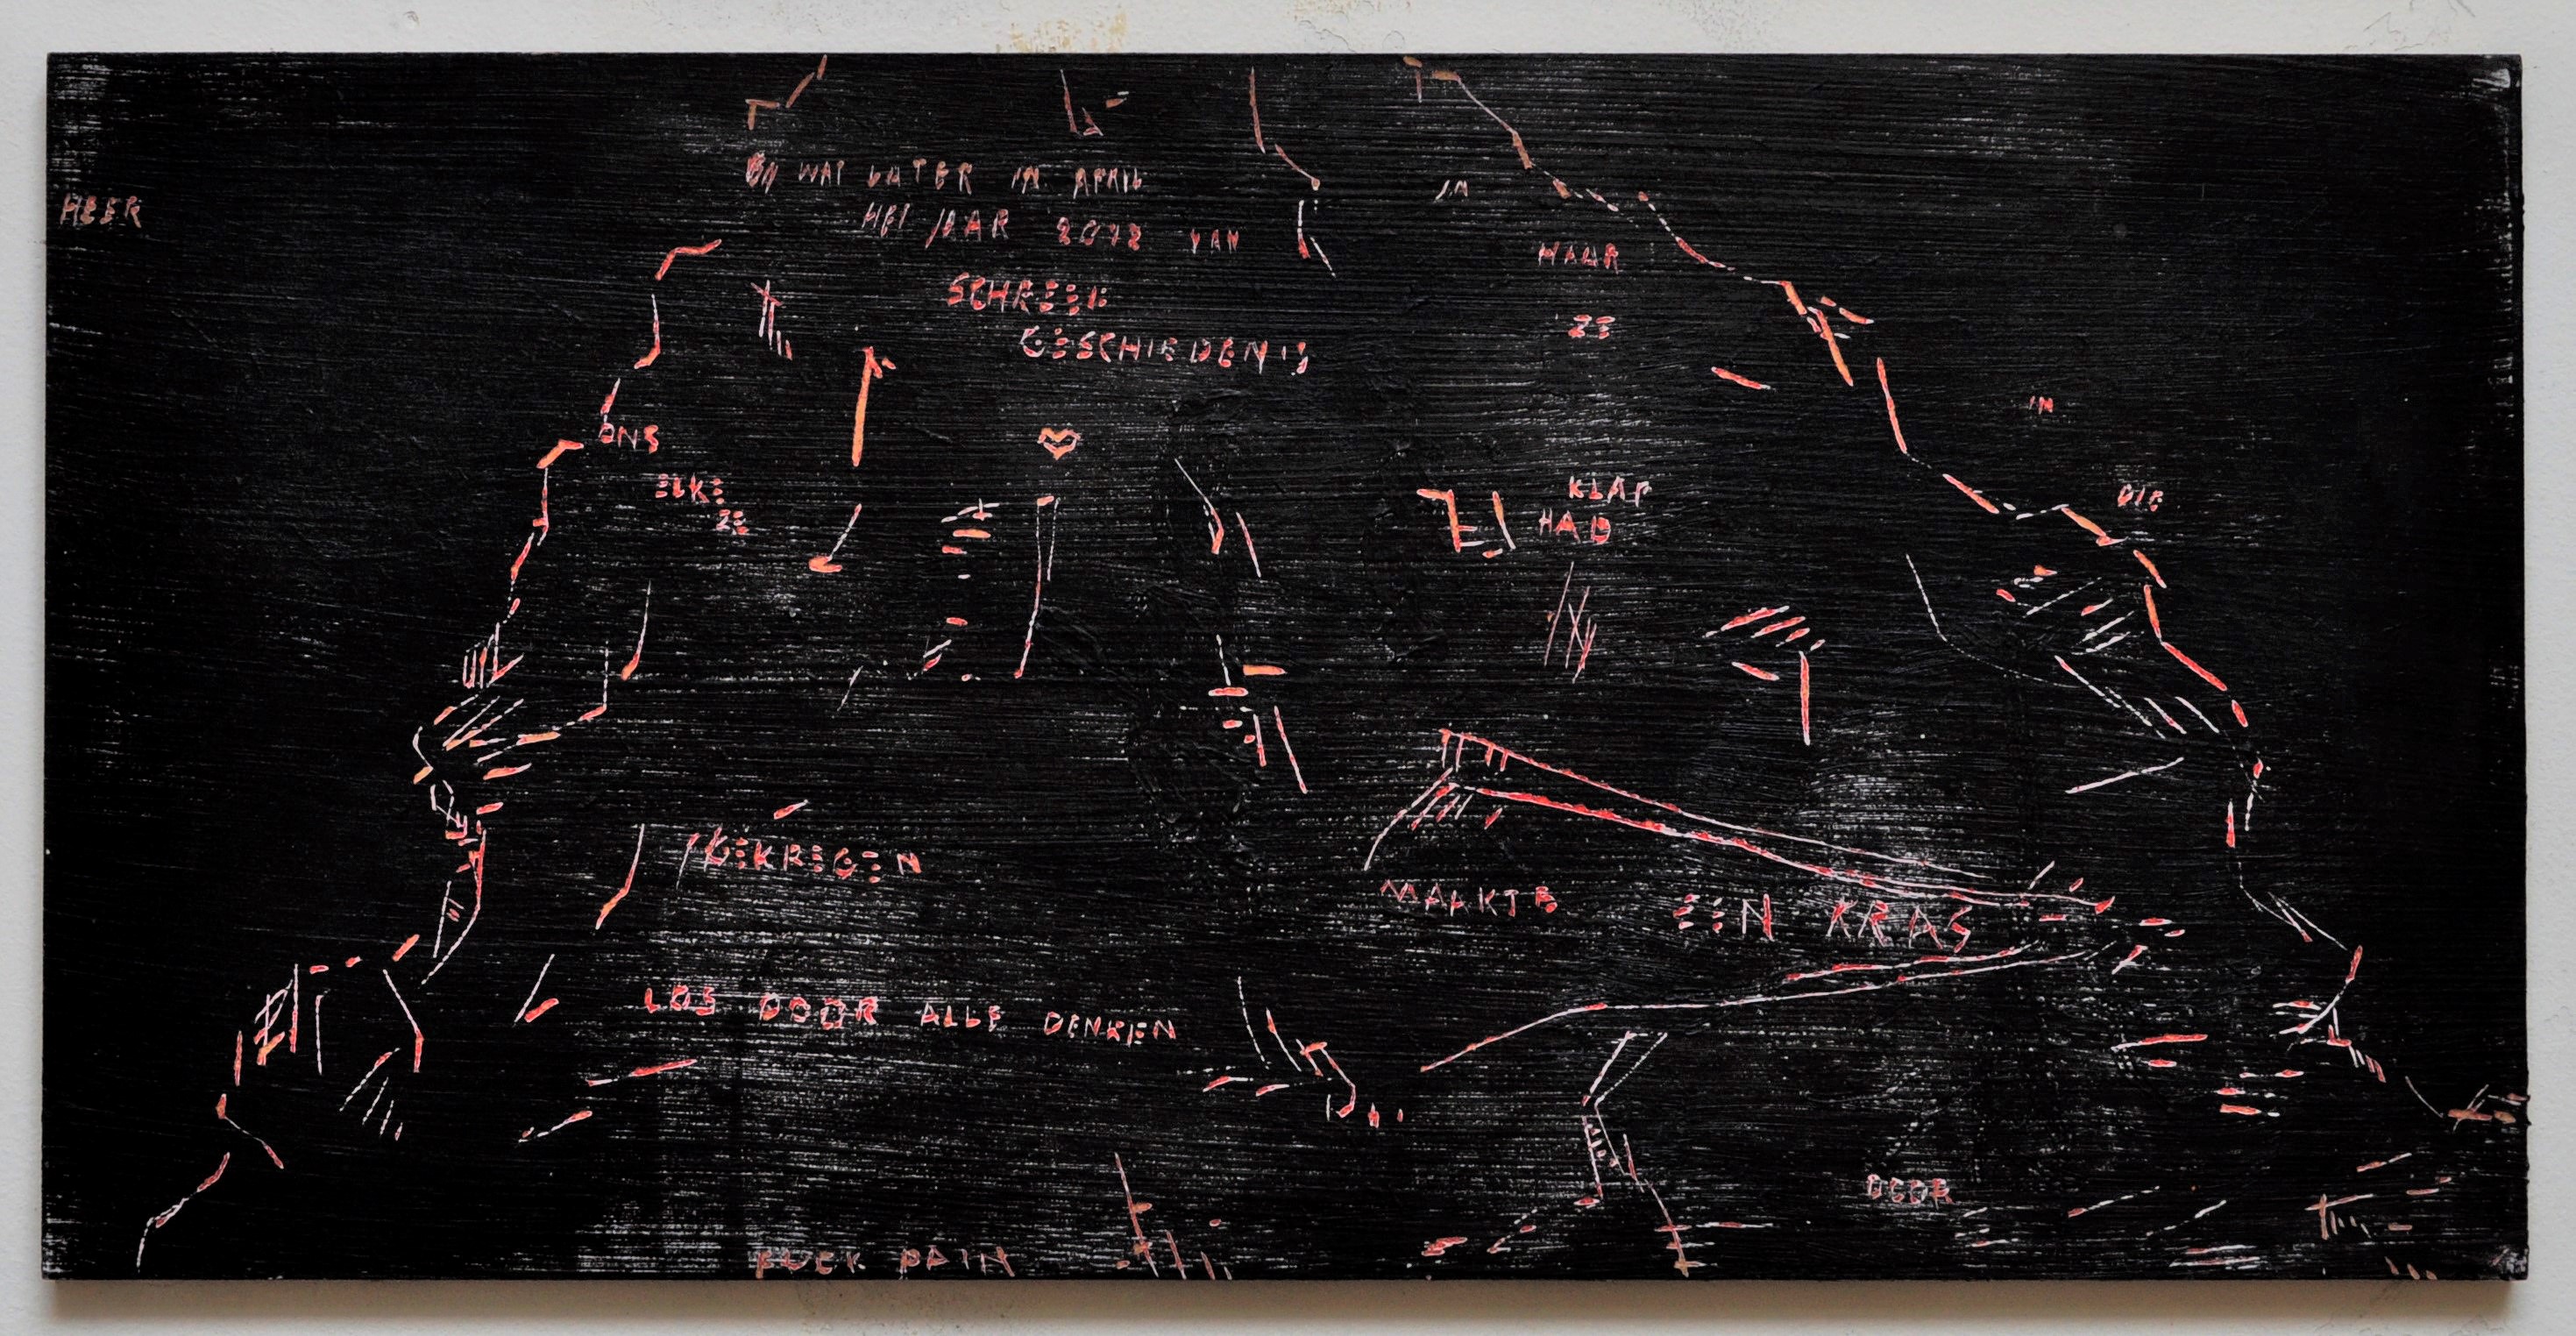 HEER
EN WAT LATER IN APRIL
HET JAAR 2072 VAN
SCHREEF
GESCHIEDENIS
IN
MAAR
ZE
IN
ONS
ELKE
ZE
KLAP
HAD
DIE
GEKREGEN
MAAKTE
EEN KRAS
LOS DOOR ALLE DENKEN
DOOR
FUCK PAIN